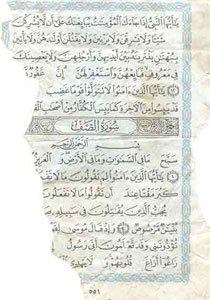 يَٰٓأَيُّهَا ٱلنَّبِيُّ إِذَا جَآءَكَ ٱلۡمُؤۡمِنَٰتُ يُبَايِعۡنَكَ عَلَىٰٓ أَن لَّا يُشۡرِكۡنَ
شَيۡـٔٗا وَلَا يَسۡرِقۡنَ وَلَا يَزۡنِينَ وَلَا يَقۡتُلۡنَ أَوۡلَٰدَهُنَّ وَلَا يَأۡتِينَ
بِبُهۡتَٰنٖ يَفۡتَرِينَهُۥ بَيۡنَ أَيۡدِيهِنَّ وَأَرۡجُلِهِنَّ وَلَا يَعۡصِينَكَ
فِي مَعۡرُوفٖ فَبَايِعۡهُنَّ وَٱسۡتَغۡفِرۡ لَهُنَّ إِنَّ غَفُورٞ
١٢ يَٰٓأَيُّهَا ٱلَّذِينَ ءَامَنُواْ لَا تَتَوَلَّوۡاْ قَوۡمًا غَضِبَ
قَدۡ يَئِسُواْ مِنَ ٱلۡأٓخِرَةِ كَمَا يَئِسَ ٱلۡكُفَّارُ مِنۡ أَصۡحَٰبِ
سُورَةُ الصَّفِّ
ٱلرَّحۡمَٰنِ ٱلرَّحِيمِ
سَبَّحَ مَا فِي ٱلسَّمَٰوَٰتِ وَمَا فِي ٱلۡأَرۡضِ
١ يَٰٓأَيُّهَا ٱلَّذِينَ ءَامَنُواْ لِمَ تَقُولُونَ مَا لَا
كَبُرَ مَقۡتًا عِندَ أَن تَقُولُواْ مَا لَا تَفۡعَلُونَ
يُحِبُّ ٱلَّذِينَ يُقَٰتِلُونَ فِي سَبِيلِهِۦ
بُنۡيَٰنٞ مَّرۡصُوصٞ ٤ وَإِذۡ قَالَ مُوسَىٰ
تُؤۡذُونَنِي وَقَد تَّعۡلَمُونَ أَنِّي رَسُولُ
زَاغُوٓاْ أَزَاغَ قُلُوبَهُمۡ لَا يَهۡدِي
٥٥١